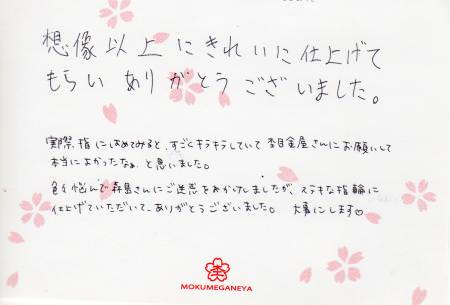 想像以上にきれいに仕上げて
もらいありがとうございました。
実際、指にはめてみると、すごくキラキラしていて杢目金屋さんにお願いして
本当によかったなぁと思いました。
色々悩んで森島さんにご迷惑をおかけしましたが、ステキな指輪に
仕上げていただいて、ありがとうございました。 大事にします♡
MOKUMEGANEYA